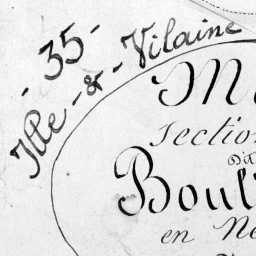 - 35 -
Ille - & - Vilaine
M
Section
Dite
Boul
en Ne